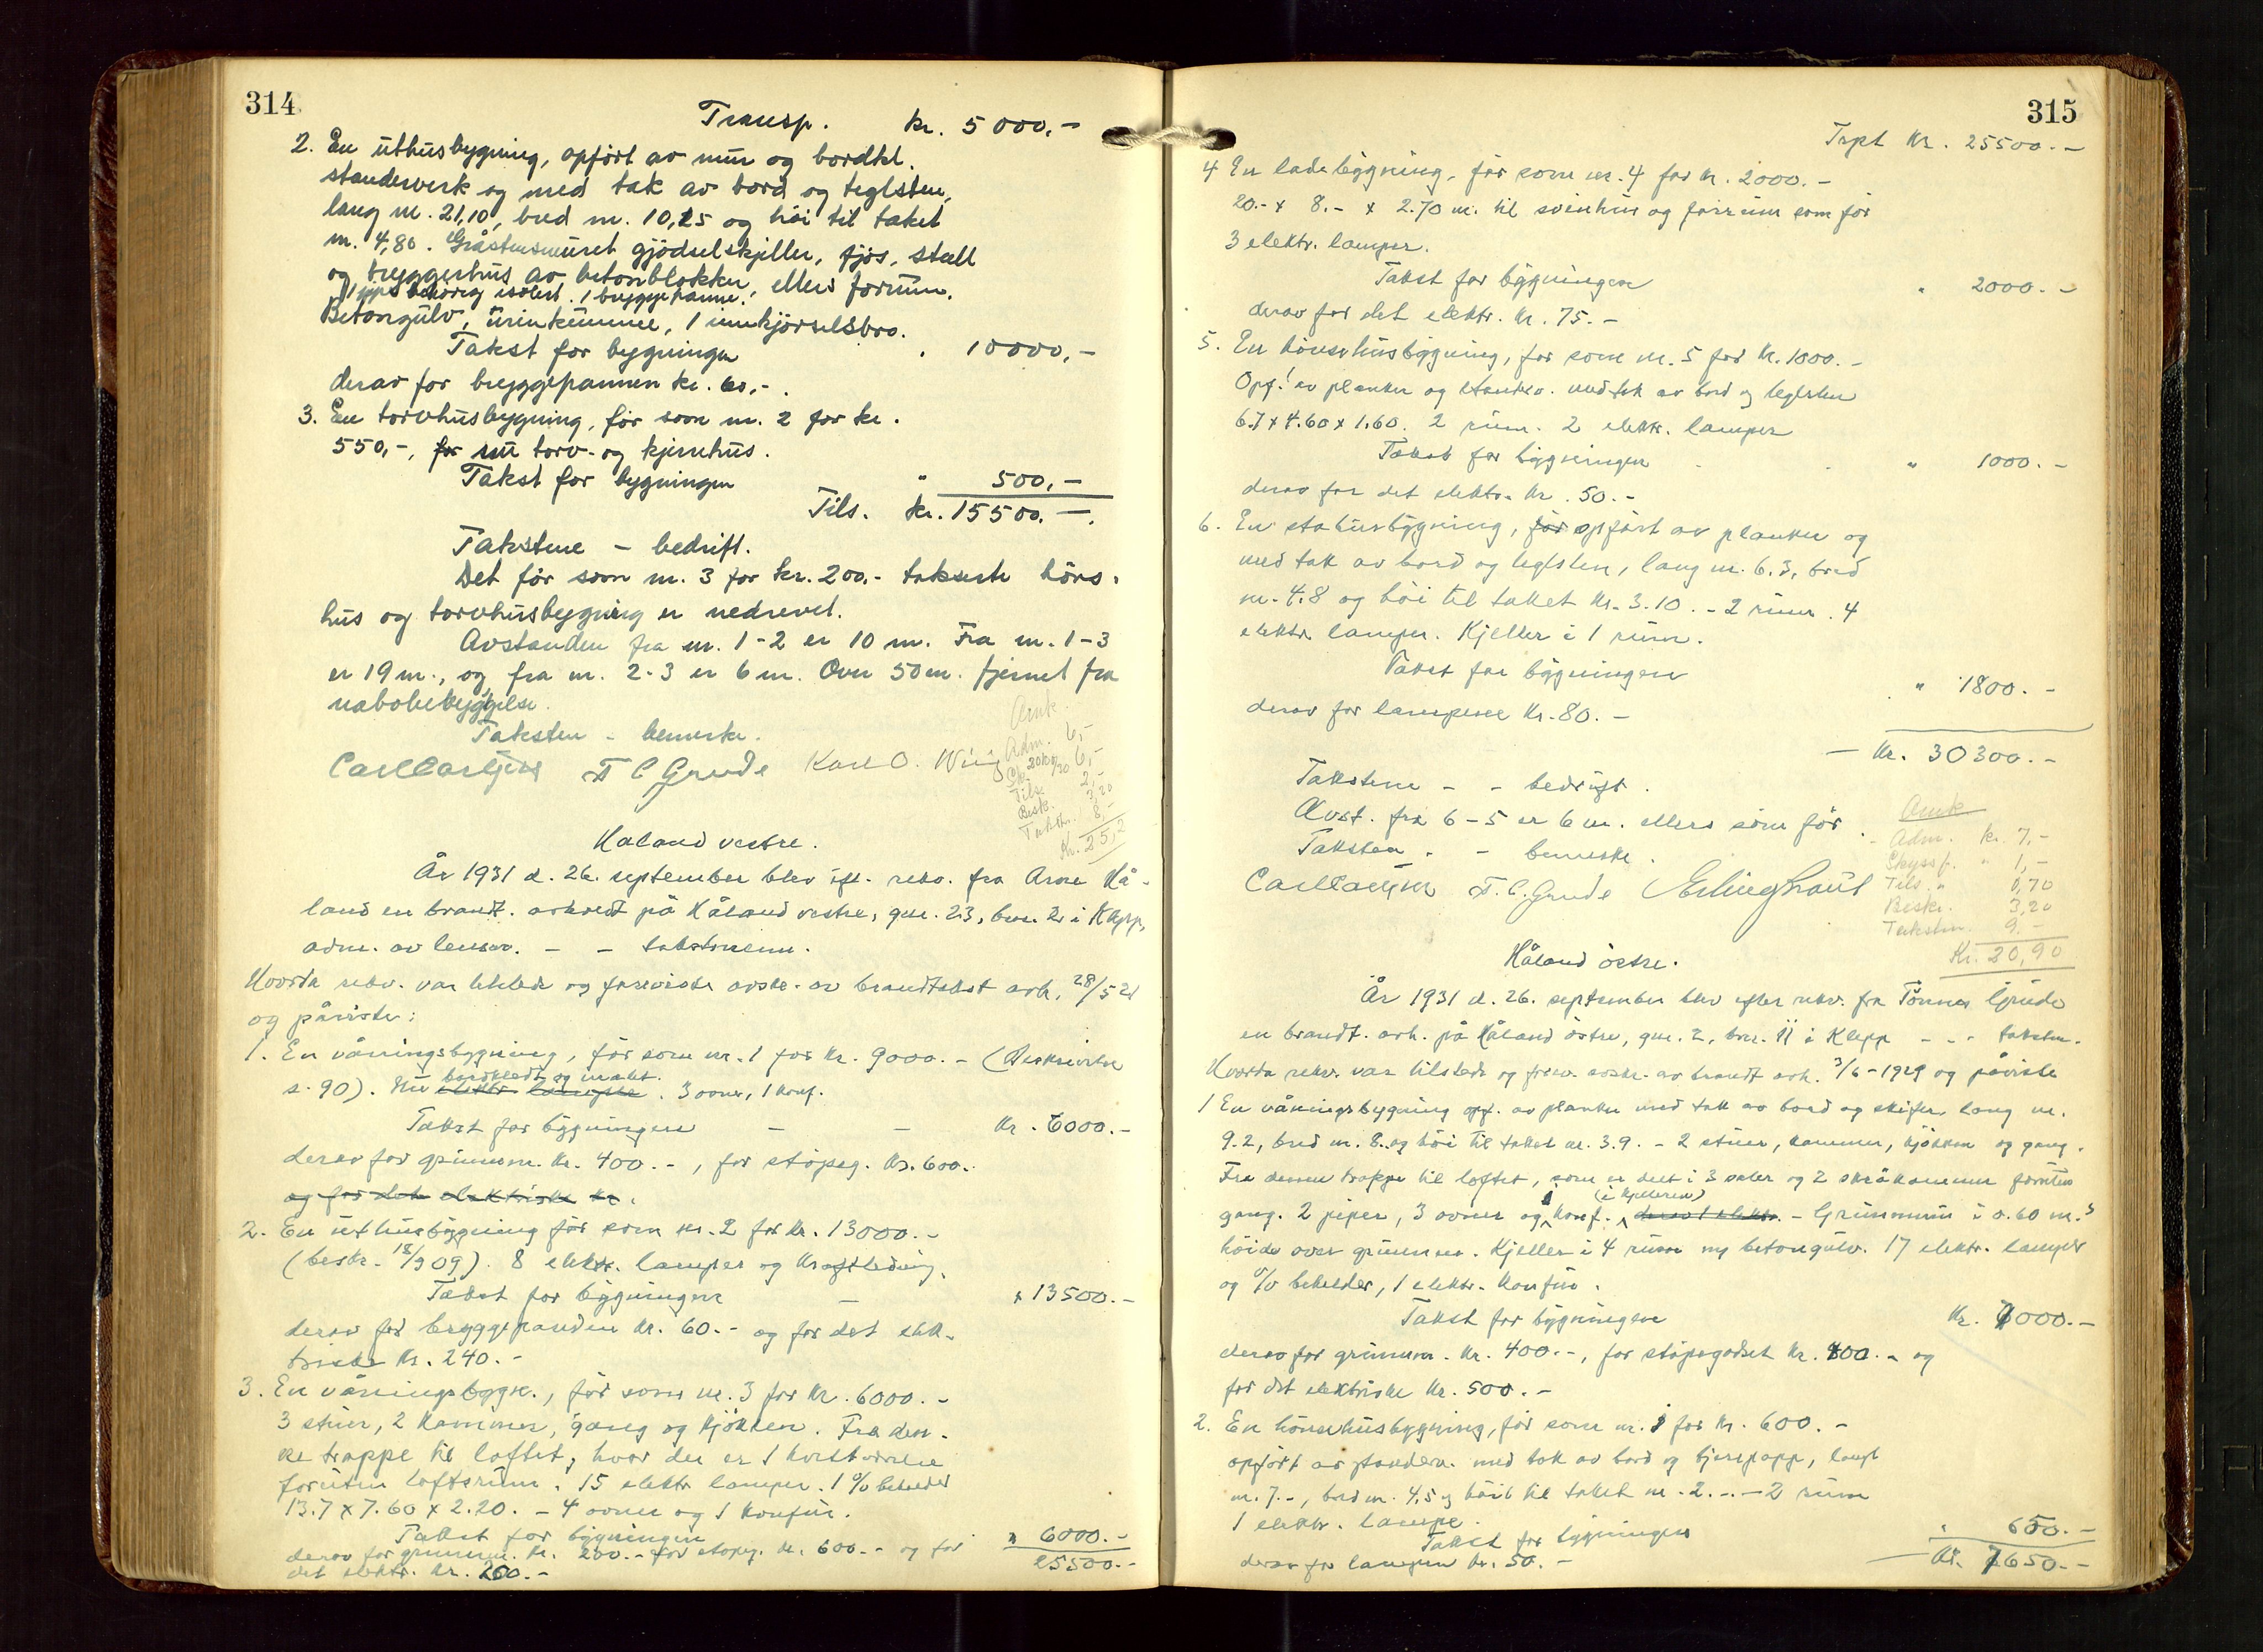 314
Transp. kr. 5000,-
2. En uthusbygning, opført av mur og bordkl.
standerverk og med tak av bord og teglsten,
lang m. 21,10, bred m. 10,25 og høi til taket
m. 4,80. Gråstensmuret gjødselskjeller, fjøs, stall
og bryggerhus av betonblokker, ellers forrum.
1 pipe behørig isolert. 1 bryggepanne.
Betongulv, urinkummer, 1 innkjørselsbro.
Takst for bygningen " 10000,-
derav for bryggepannen kr. 60,-.
3. En torvhusbygning, før som nr. 2 for kr.
550,-, for nu torv- og kjernehus.
Takst for bygningen " 500,-
Tils. kr. 15500.-.
Takstene - bedrift.
Det før som nr. 3 for kr. 200,- takserte høns-
hus og torvhusbygning er nedrevet.
Avstanden fra nr. 1-2 er 10 m. Fra nr. 1-3
er 19 m., og fra nr. 2-3 er 6 m. Over 50 m. fjernet fra
nabobebyggelse.
Taksten - bemerke.
Carl Carlsen T C Grude Karl O. Wiig
Adm. 6,-
6,-
Tils. 2,-
Besk. 3,20
Takstm. 8,-
Kr. 25,2
Haland vestre.
År 1931 d. 26. september blev eft. rekv. fra Arne Hå-
land en brandt. avholdt på Håland vestre, gnr. 23, bnr. 2 i Klepp,
adm. av lensm. - - takstmenn.
Hvorda rekv. var tilstede og foreviste avskr. av brandtakst avh. 28/5 21
og påviste:
1. En våningsbygning, før som nr. 1 for kr. 9000.- (Beskrivelse
s. 90). Nu elektr. lampe bordkledt og malet. 3 ovner, 1 konf.
Takst for bygningen - - kr. 6000.-
derav for grunnm. kr. 400.-, for støpeg. kr. 600.-
og for det elektriske kr.
2. En uthusbygning før som nr. 2 for kr. 13000.-
(beskr. 18/9 09). 8 elektr. lamper og kraftledning.
Takst for bygningen - " 13500.-
derav for bryggepanden kr. 60.- og for det elek-
triske kr. 240.-
3. En våningsbygn., før som nr. 3 for kr. 6000.-
3 stuer, 2 kammer, gang og kjøkken. Fra den-
ne trappe til loftet, hvor der er 1 kvistværelse
foruten loftsrum. 15 elektr. lamper. 1 % beholder
13.7 x 7.60 x 2.20. - 4 ovner og 1 konfur.
Takst for bygningen " 6000.-
derav for grunnm. kr. 200.- for støpeg. kr. 600.- og for 25500.-
det elektr. kr. 200.-
315
Trpt kr. 25500.-
4 En ladebygning, før som nr. 4 for kr. 2000.-
20.- x 8.- x 2.70 m. til svinhus og forrum som før
3 elektr. lamper.
Takst for bygningen " 2000.-
derav for det elektr. kr. 75.-
5. En hønsehusbygning, før som nr. 5 for kr. 1000.-
Opf. av planker og standerv. med tak av bord og teglsten
6.7 x 4.60 x 1.60. 2 rum. 2 elektr. lamper
Takst for bygningen " 1000.-
derav for det elektr. kr. 50.-
6. En stahusbygning, før opført av planker og
med tak av bord og teglsten, lang m. 6.3, bred
m. 4.8 og høi til taket kr. 3.10. - 2 rum. 4
elektr. lamper. Kjeller i 1 rum.
Takst for bygningen " 1800.-
derav for lampene kr. 80.-
- kr. 30300.-
Takstene - - bedrift.
Avst. fra 6-5 er 6 m. ellers som før.
Taksten - - bemerke.
Carl Carlsen T. C. Grude Erling Graul
Adm. kr. 7,-
Skyssp. " 1,-
Tils. " 0,70
Beskr. 3,20
Takstm. 9.-
Kr. 20,90
Håland østre.
År 1931 d. 26. september blev efter rekv. fra Tønnes Grude
en brandt. avh. på Håland østre, gnr. 2, bnr. 11 i Klepp - - - takstm.
Hvorda rekv. var tilstede og forev. avskr. av brandt avh. 3/6-1929 og påviste
1 En våningsbygning opf. av planker med tak av bord og skifer, lang m.
9.2, bred m. 8. og høi til taket m. 3.9. - 2 stuer, kammer, kjøkken og gang.
Fra denne trappe til loftet, som er delt i 3 saler og 2 skråkammer foruten
gang. 2 piper, 3 ovner og 1 konf. (i kjelleren) derav 1 elektr. - Grunnmur i 0.60 m.s
høide over grunnen. Kjeller i 4 rum og betongulv. 17 elektr. lamper
og % beholder, 1 elektr. konfur.
Takst for bygningen kr. 7000.-
derav for grunnm. kr. 400.-, for støpegodset kr. 400.- og
for det elektriske kr. 500.-
2. En hønsehusbygning, før som nr. 1 for kr. 600.-
opført av standerv. med tak av bord og tjærepapp, lang
m. 7.-, bred m. 4,5 og høi til taket m. 2.-.- 2 rum
1 elektr. lampe.
Takst for bygningen " 650.-
derav for lampen kr. 50.- - kr. 7650.-